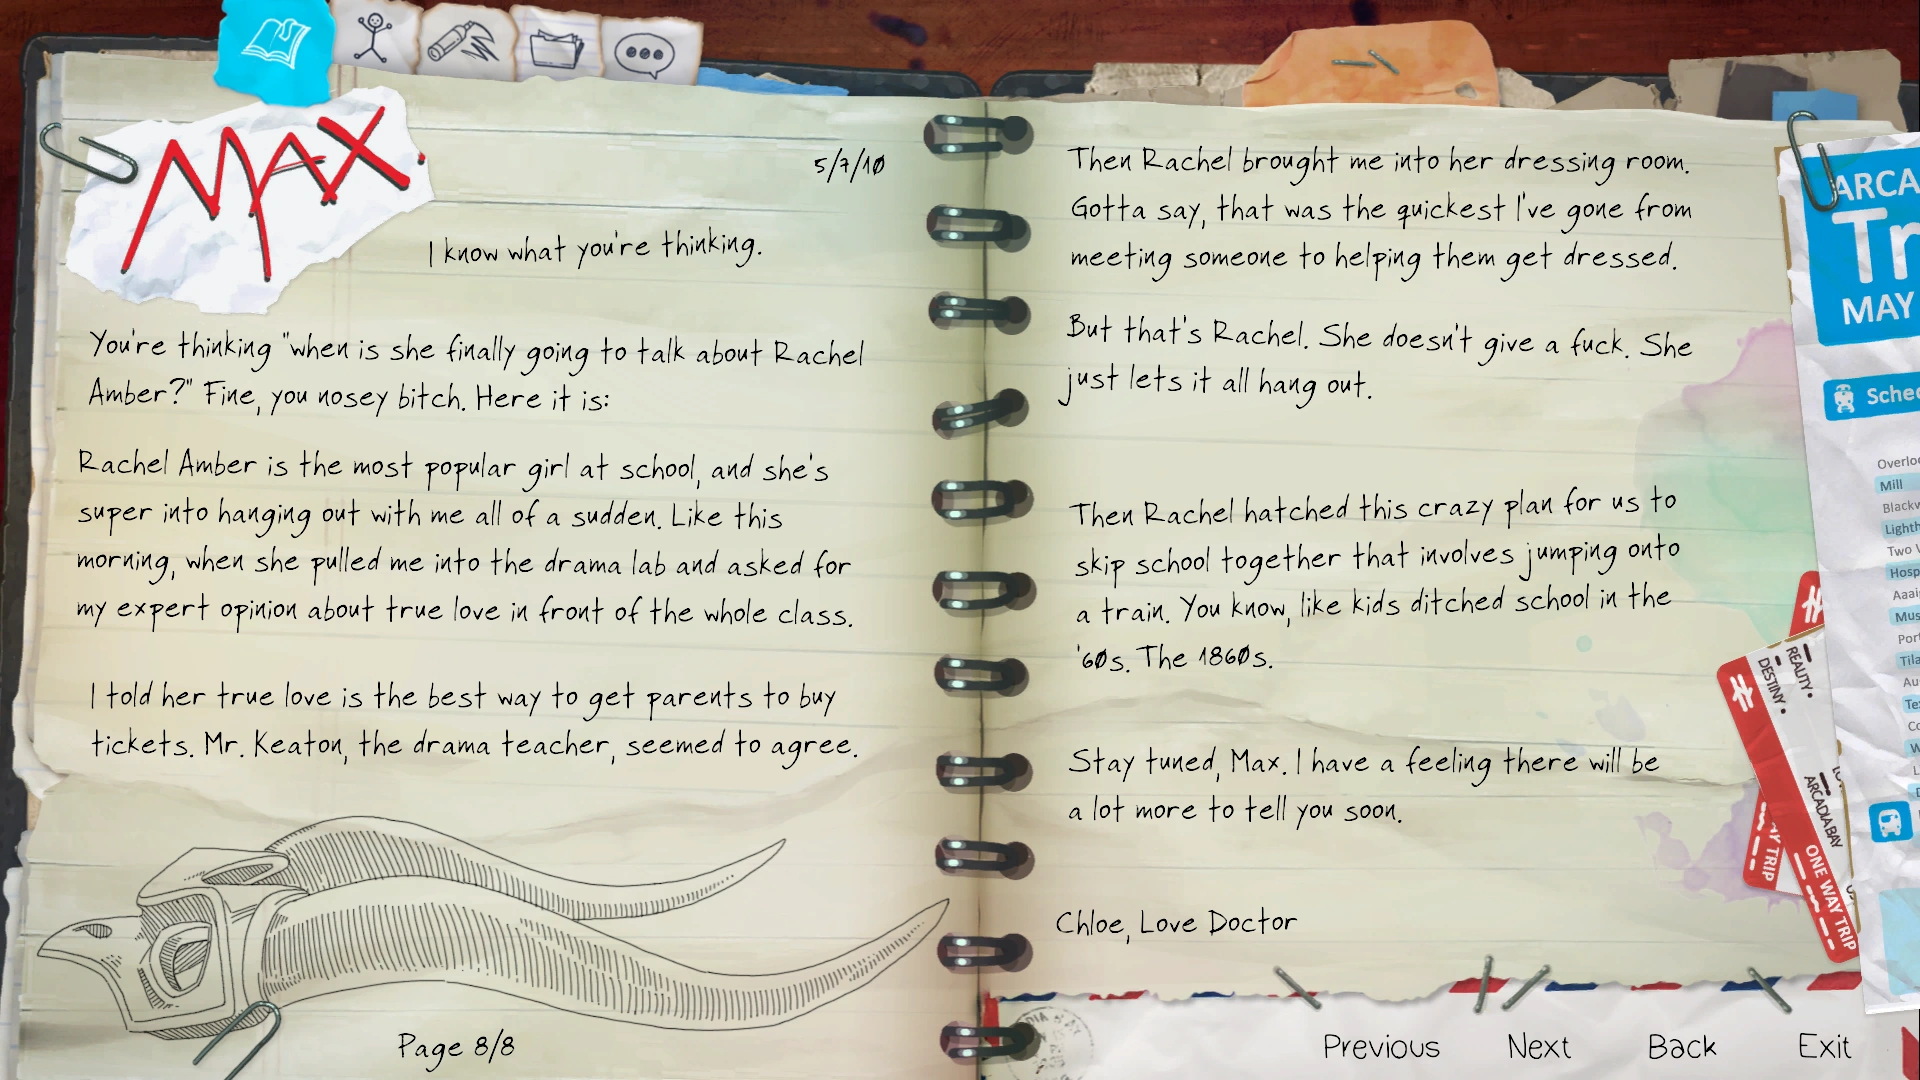 MAX.
5/7/10
I know what you're thinking.
You're thinking "when is she finally going to talk about Rachel
Amber?" Fine, you nosey bitch. Here it is:
Rachel Amber is the most popular girl at school, and she's
super into hanging out with me all of a sudden. Like this
morning, when she pulled me into the drama lab and asked for
my expert opinion about true love in front of the whole class.
I told her true love is the best way to get parents to buy
tickets. Mr. Keaton, the drama teacher, seemed to agree.
Page 8/8
Then Rachel brought me into her dressing room.
Gotta say, that was the quickest I've gone from
meeting someone to helping them get dressed.
But that's Rachel. She doesn't give a fuck. She
just lets it all hang out.
Then Rachel hatched this crazy plan for us to
skip school together that involves jumping onto
a train. You know, like kids ditched school in the
'60s. The 1860s.
Stay tuned, Max. I have a feeling there will be
a lot more to tell you soon.
Chloe, Love Doctor
ARCA
Tr
MAY
Sched
Overloo
Mill
Blackw
Lighth
Two
Hosp
Mus
Port
Tila
REALITY
DESTINY
ARCADIA BAY
ONE WAY TRIP
Y TRIP
Previous
Next
Back
Exit